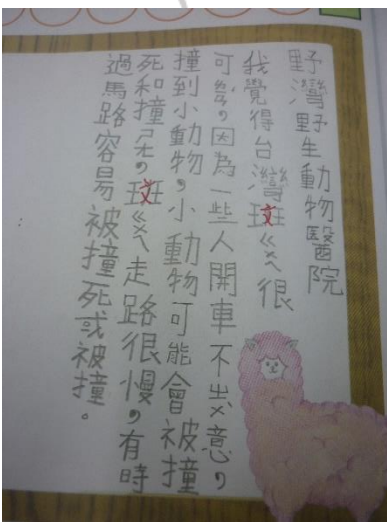 野灣野生動物醫院
我覺得台灣斑ㄍㄨ很
可，因為一些人開車不ㄓㄨˋ意，
撞到小動物，小動物可能會被撞
死和撞ㄕㄤ，斑ㄍㄨ走路很慢，有時
過馬路容易被撞死或被撞。